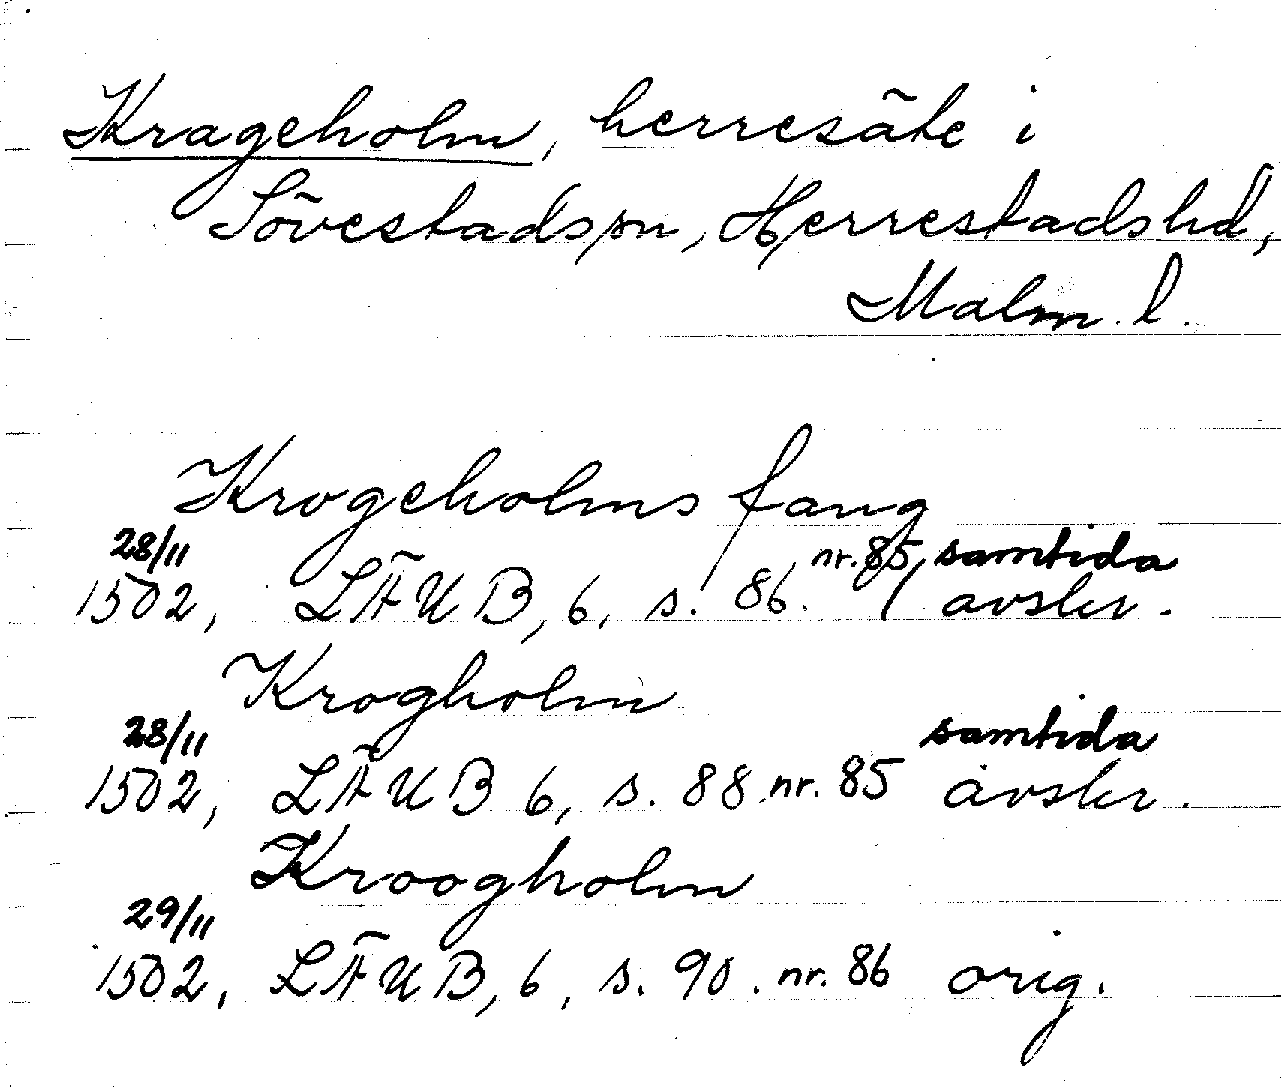 Krageholm, herresäte i
Sövestadspn, Herrestadshd,
Malm. l.
Krogeholms fang
28/11 nr. 85, samtida
1502, LÄUB, 6, s. 86. avskr.
Krogholm
28/11 samtida
1502, LÄUB 6, s. 88 nr. 85 avskr.
Kroogholm
29/11
1502, LÄUB, 6, s. 90. nr. 86 orig.